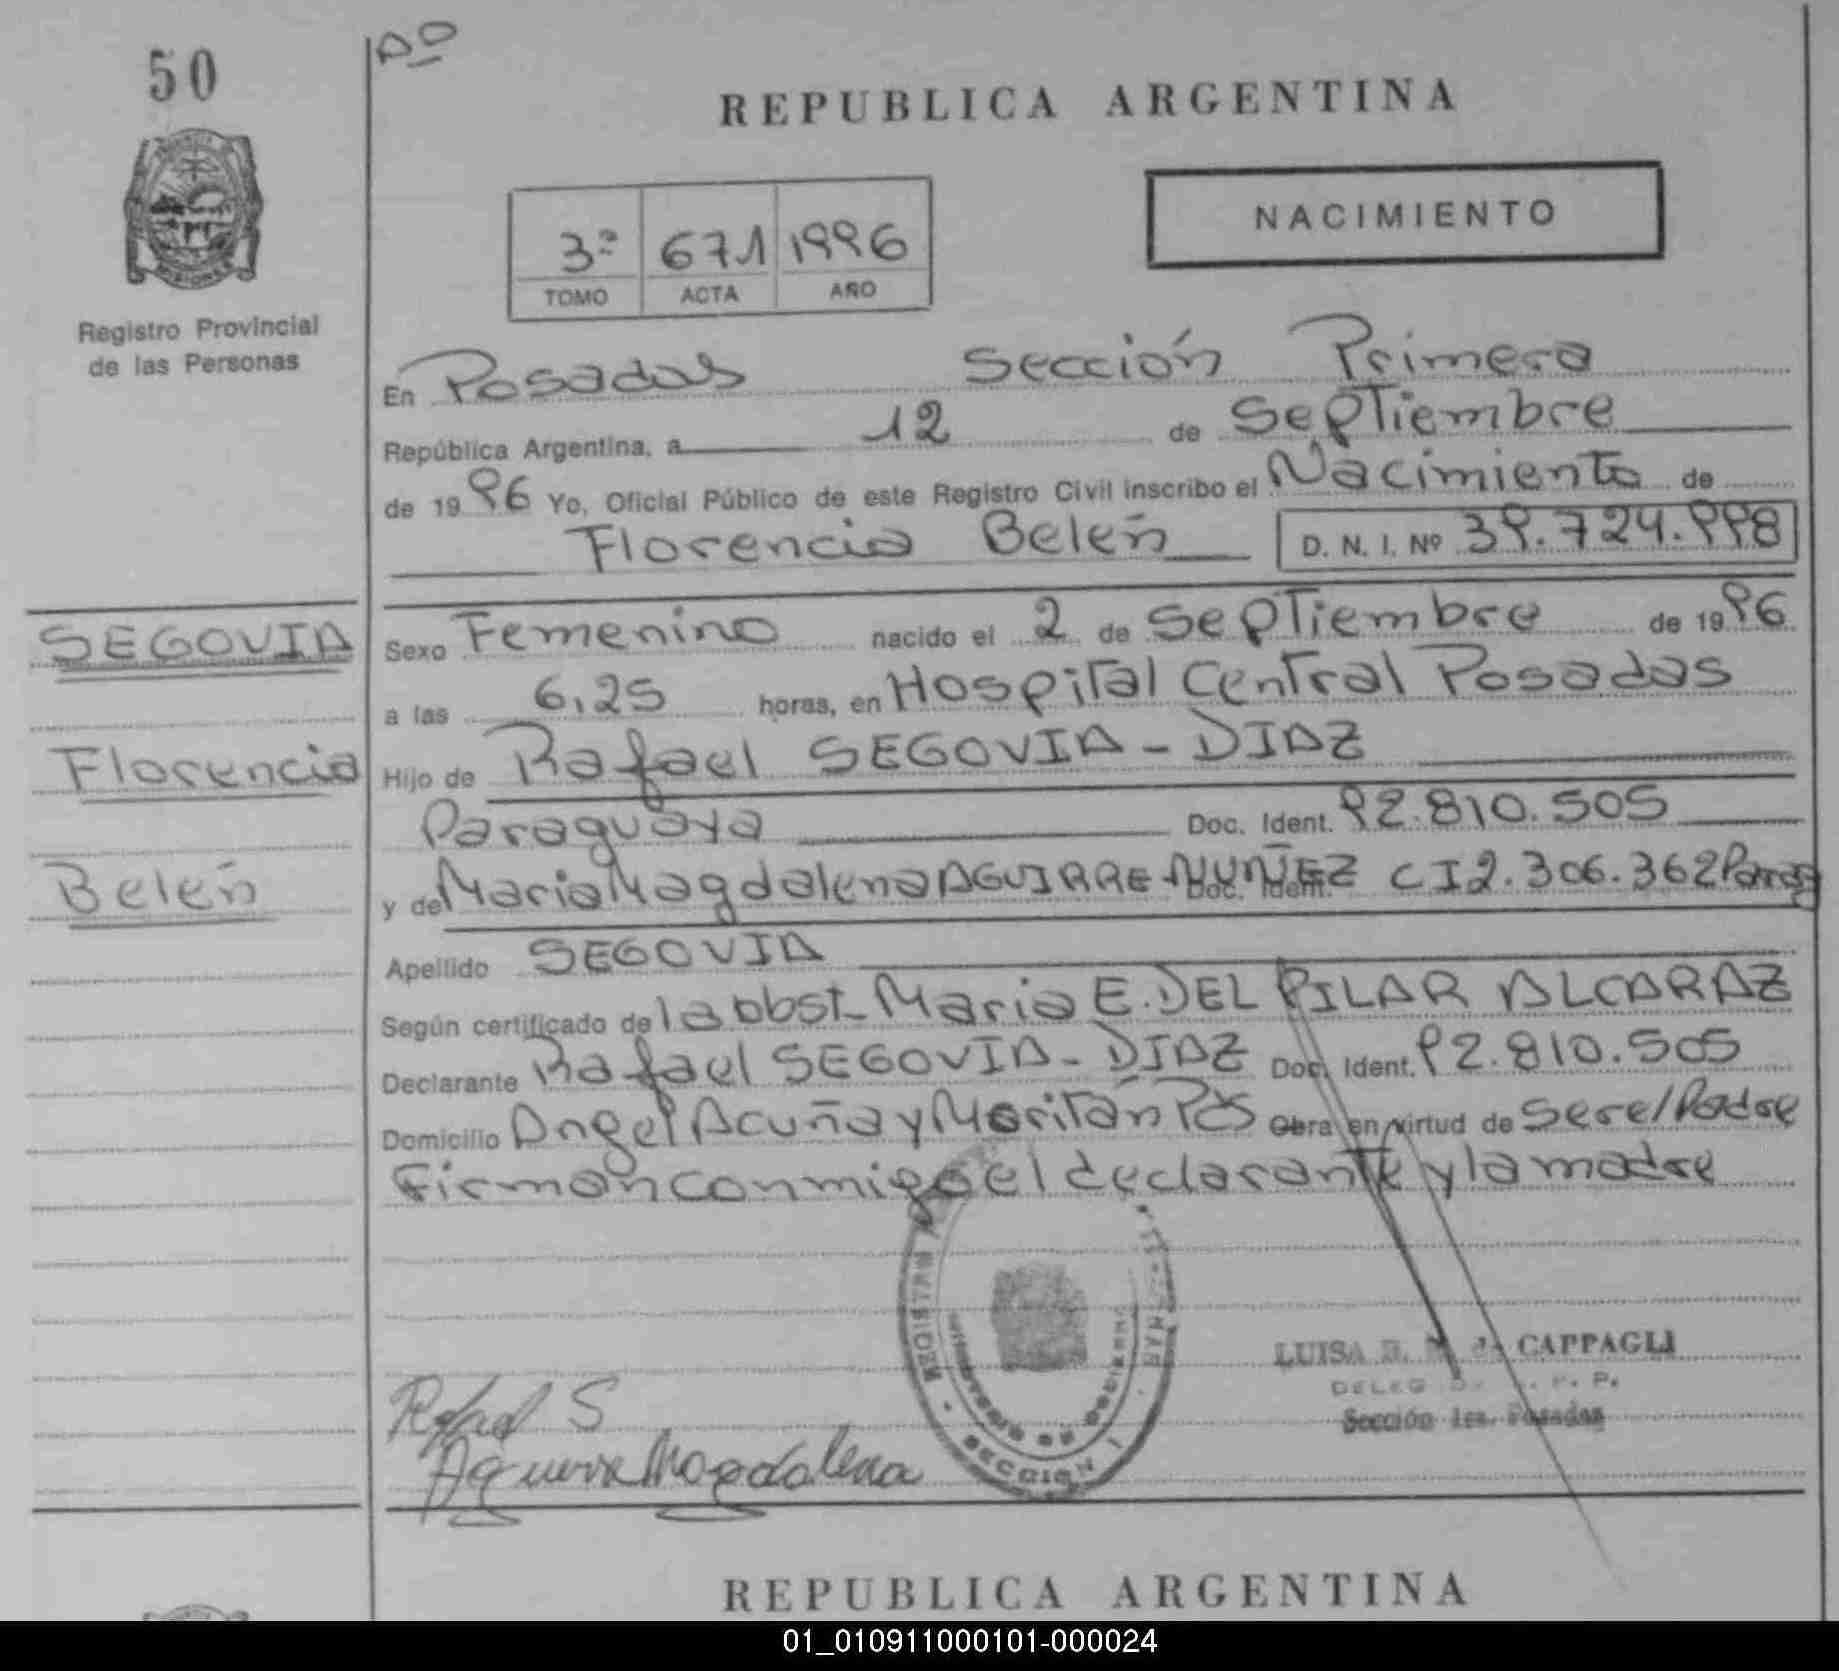 50
Aº
REPUBLICA ARGENTINA
NACIMIENTO
3ª 671 1996
TOMO ACTA AÑO
MISIONES
Registro Provincial
de las Personas
En Posadas Sección Primera
República Argentina, a 12 de Septiembre
de 1996 Yo, Oficial Público de este Registro Civil inscribo el Nacimiento de
Florencia Belén D. N. I. Nº 39.724.998
SEGOVIA
Florencia
Belén
Sexo Femenino nacido el 2 de Septiembre de 1996
a las 6,25 horas, en Hospital Central Posadas
Hijo de Rafael SEGOVIA - DIAZ
Paraguaya Doc. Ident. 92.810.505
y de Maria Magdalena AGUIRRE-NUÑEZ Doc. Ident. CI 2.306.362 Parag
Apellido SEGOVIA
Según certificado de la obst. Maria E. DEL PILAR ALCARAZ
Declarante Rafael SEGOVIA - DIAZ Doc. Ident. 92.810.505
Domicilio Angel Acuña y Moritán Pds Obra en virtud de ser el Padre
Firman conmigo el declarante y la madre
MINISTERIO DE GOBIERNO
SECCION 1
LUISA CAPPAGLI
DELEG
Sección 1ra. Posadas
Rafael S
Aguirre Magdalena
REPUBLICA ARGENTINA
01_010911000101-000024